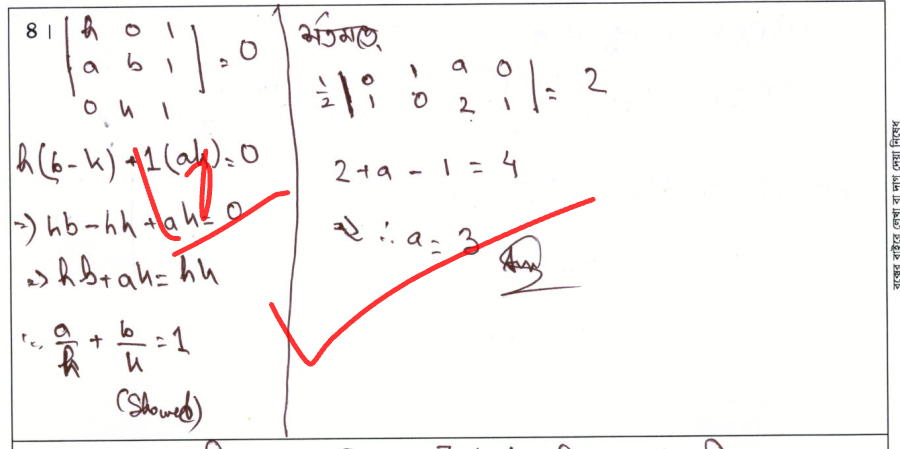 8। | h 0 1 |
| a b 1 | = 0
0 k 1
h(b-k) + 1(ak) = 0
⇒) hb - hk + ak = 0
⇒ hb + ak = hk
∴ a/h + b/k = 1
(Showed)
শর্তমতে,
1/2 | 0 1 a 0 | = 2
| 1 0 2 1 |
2 + a - 1 = 4
∴ a = 3 Ans
বক্সের বাইরে লেখা বা দাগ দেয়া নিষেধ